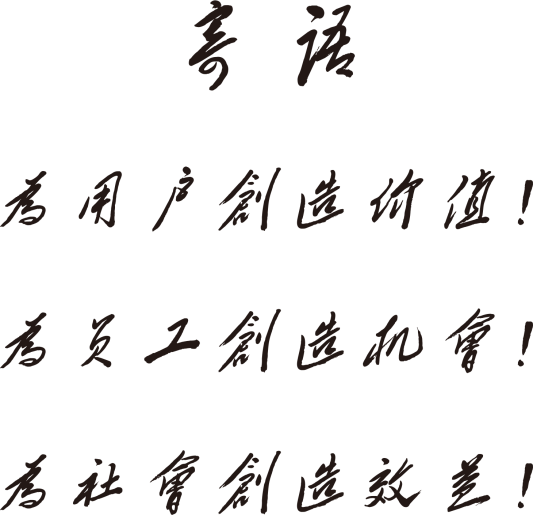 寄语
為用户創造价值!
為员工創造机會!
為社會創造效益!